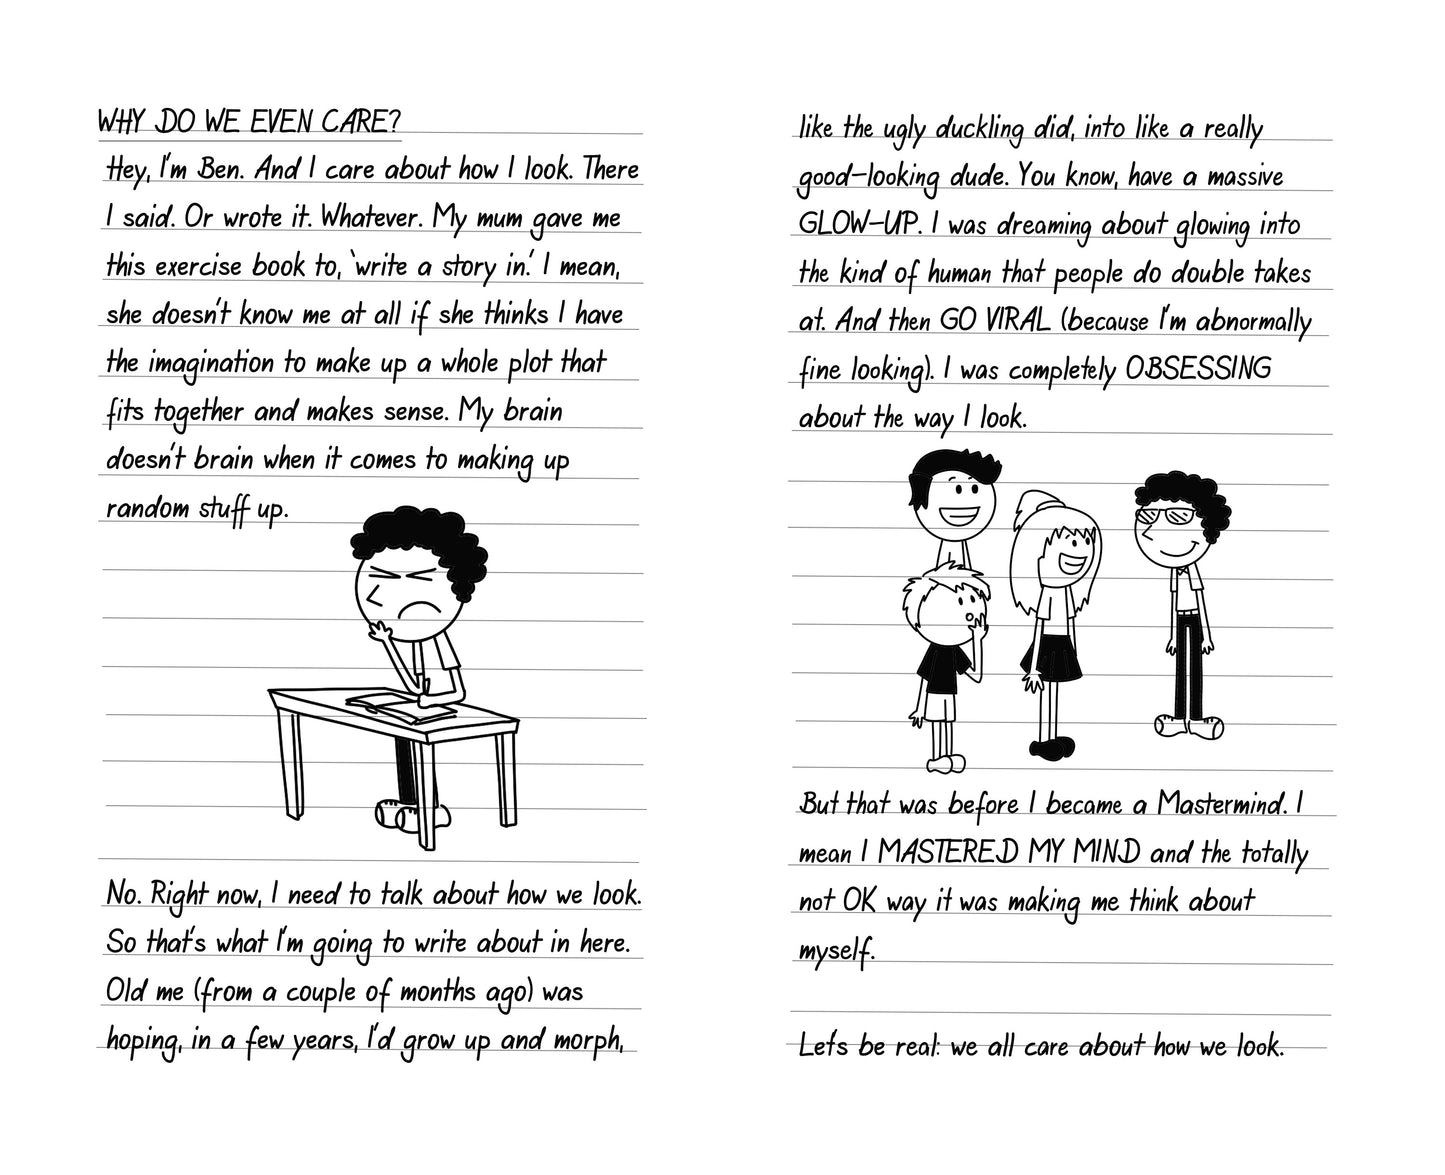 WHY DO WE EVEN CARE?
Hey, I'm Ben. And I care about how I look. There
I said. Or wrote it. Whatever. My mum gave me
this exercise book to, 'write a story in.' I mean,
she doesn't know me at all if she thinks I have
the imagination to make up a whole plot that
fits together and makes sense. My brain
doesn't brain when it comes to making up
random stuff up.
No. Right now, I need to talk about how we look.
So that's what I'm going to write about in here.
Old me (from a couple of months ago) was
hoping, in a few years, I'd grow up and morph,
like the ugly duckling did, into like a really
good-looking dude. You know, have a massive
GLOW-UP. I was dreaming about glowing into
the kind of human that people do double takes
at. And then GO VIRAL (because I'm abnormally
fine looking). I was completely OBSESSING
about the way I look.
But that was before I became a Mastermind. I
mean I MASTERED MY MIND and the totally
not OK way it was making me think about
myself.
Let's be real: we all care about how we look.